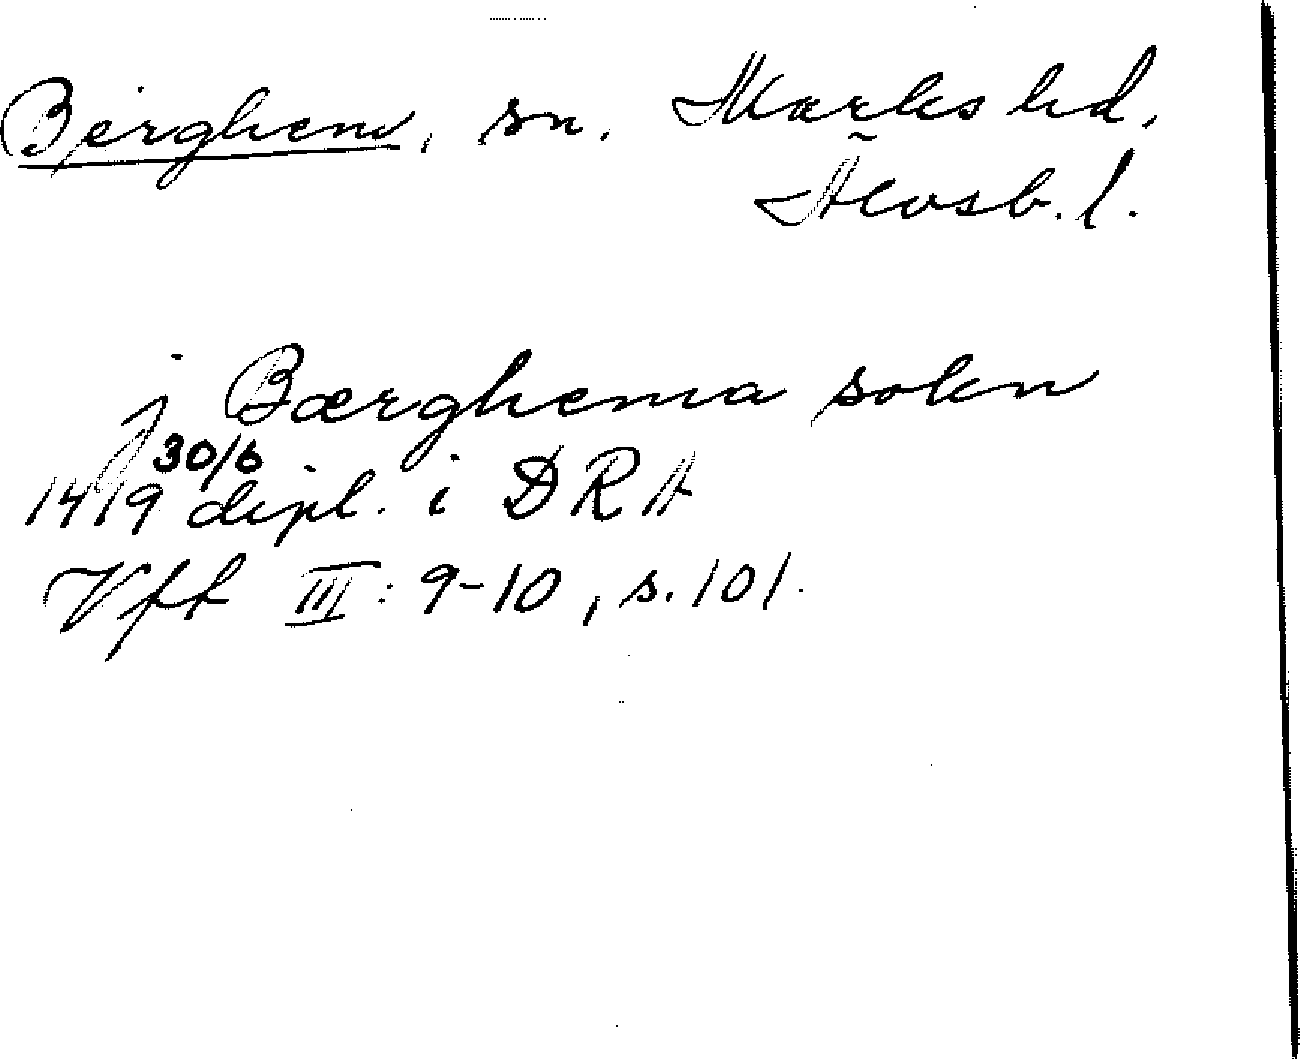 Berghem, sn. Marks hd,
Älvsb. l.
j Bærghema sokn
1419 30/6 dipl. i DRA
Vff III: 9-10, s. 101.